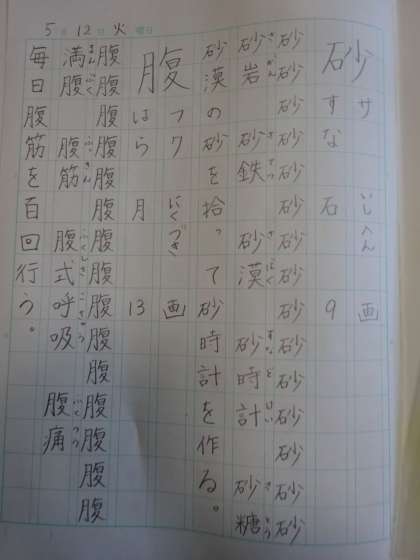 5月12日火曜日
砂 サ いしへん 画
すな 石 9
砂砂砂砂砂砂砂砂砂砂砂砂砂砂砂
砂岩 砂鉄 砂漠 砂時計 砂糖
砂漠の砂を拾って砂時計を作る。
腹 フク にくづき 画
はら 月 13
腹腹腹腹腹腹腹腹腹腹腹腹腹腹腹
満腹 腹筋 腹式呼吸 腹痛
毎日腹筋を百回行う。